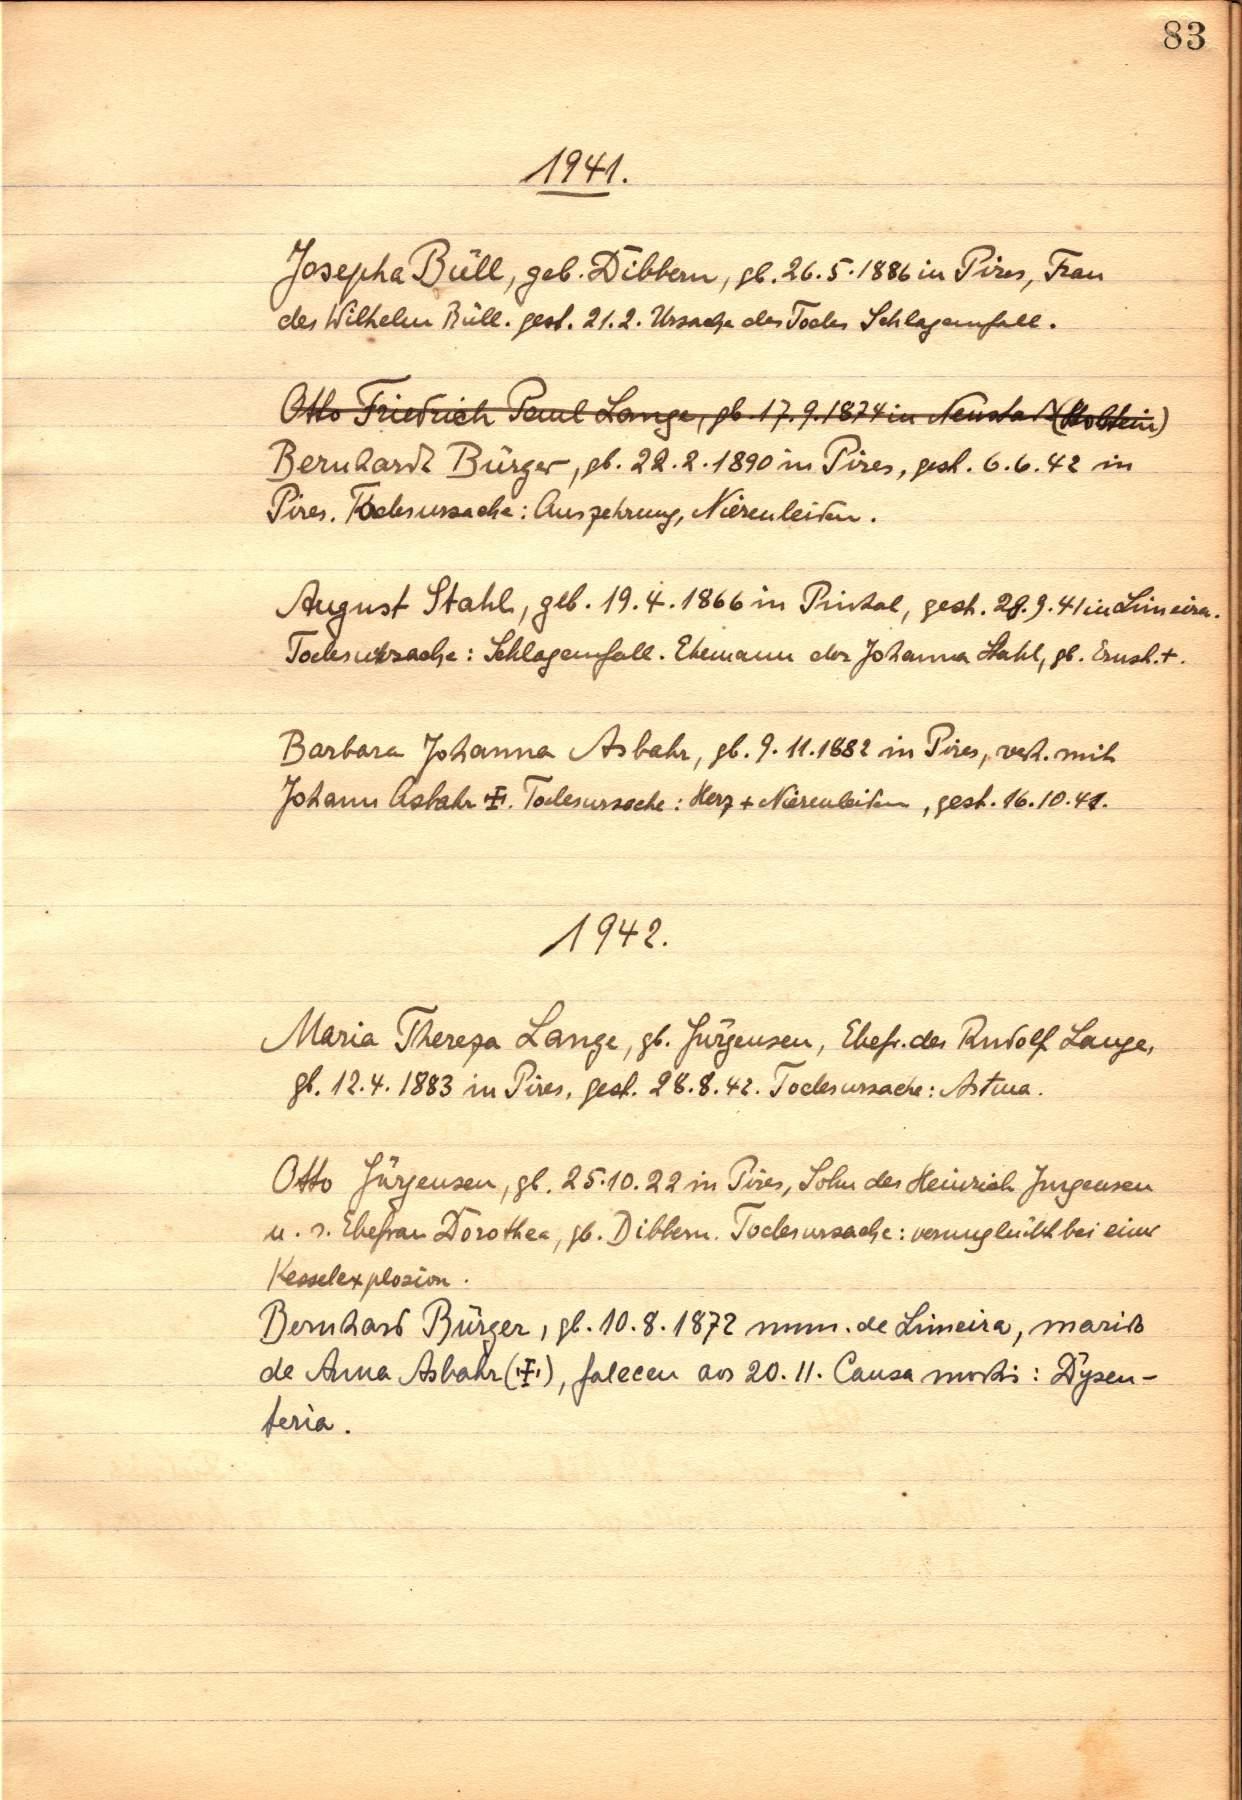 83
1941.
Josepha Büll, geb. Dibbern, gb. 26.5.1886 in Pires, Frau
des Wilhelm Büll. gest. 21.2. Ursache des Todes Schlaganfall.
Otto Friedrich Paul Lange, gb. 17.9.1874 in Neustadt (Holstein)
Bernhardt Bürger, gb. 22.2.1890 in Pires, gest. 6.6.42 in
Pires. Todesursache: Auszehrung, Nierenleiden.
August Stahl, geb. 19.4.1866 in Pinhal, gest. 28.9.41 in Limeira.
Todesursache: Schlaganfall. Ehemann der Johanna Stahl, gb. Ernst. +.
Barbara Johanna Asbahr, gb. 9.11.1882 in Pires, verh. mit
Johann Asbahr ✠. Todesursache: Herz + Nierenleiden, gest. 16.10.41.
1942.
Maria Thereza Lange, gb. Jürgensen, Ehefr. des Rudolf Lange,
gb. 12.4.1883 in Pires, gest. 28.8.42. Todesursache: Astma.
Otto Jürgensen, gb. 25.10.22 in Pires, Sohn des Heinrich Jurgensen
u. s. Ehefrau Dorothea, gb. Dibbern. Todesursache: verunglückt bei einer
Kesselexplosion.
Bernhard Bürger, gb. 10.8.1872 mun. de Limeira, marido
de Anna Asbahr (✠), faleceu aos 20.11. Causa mortis: Dysen-
teria.